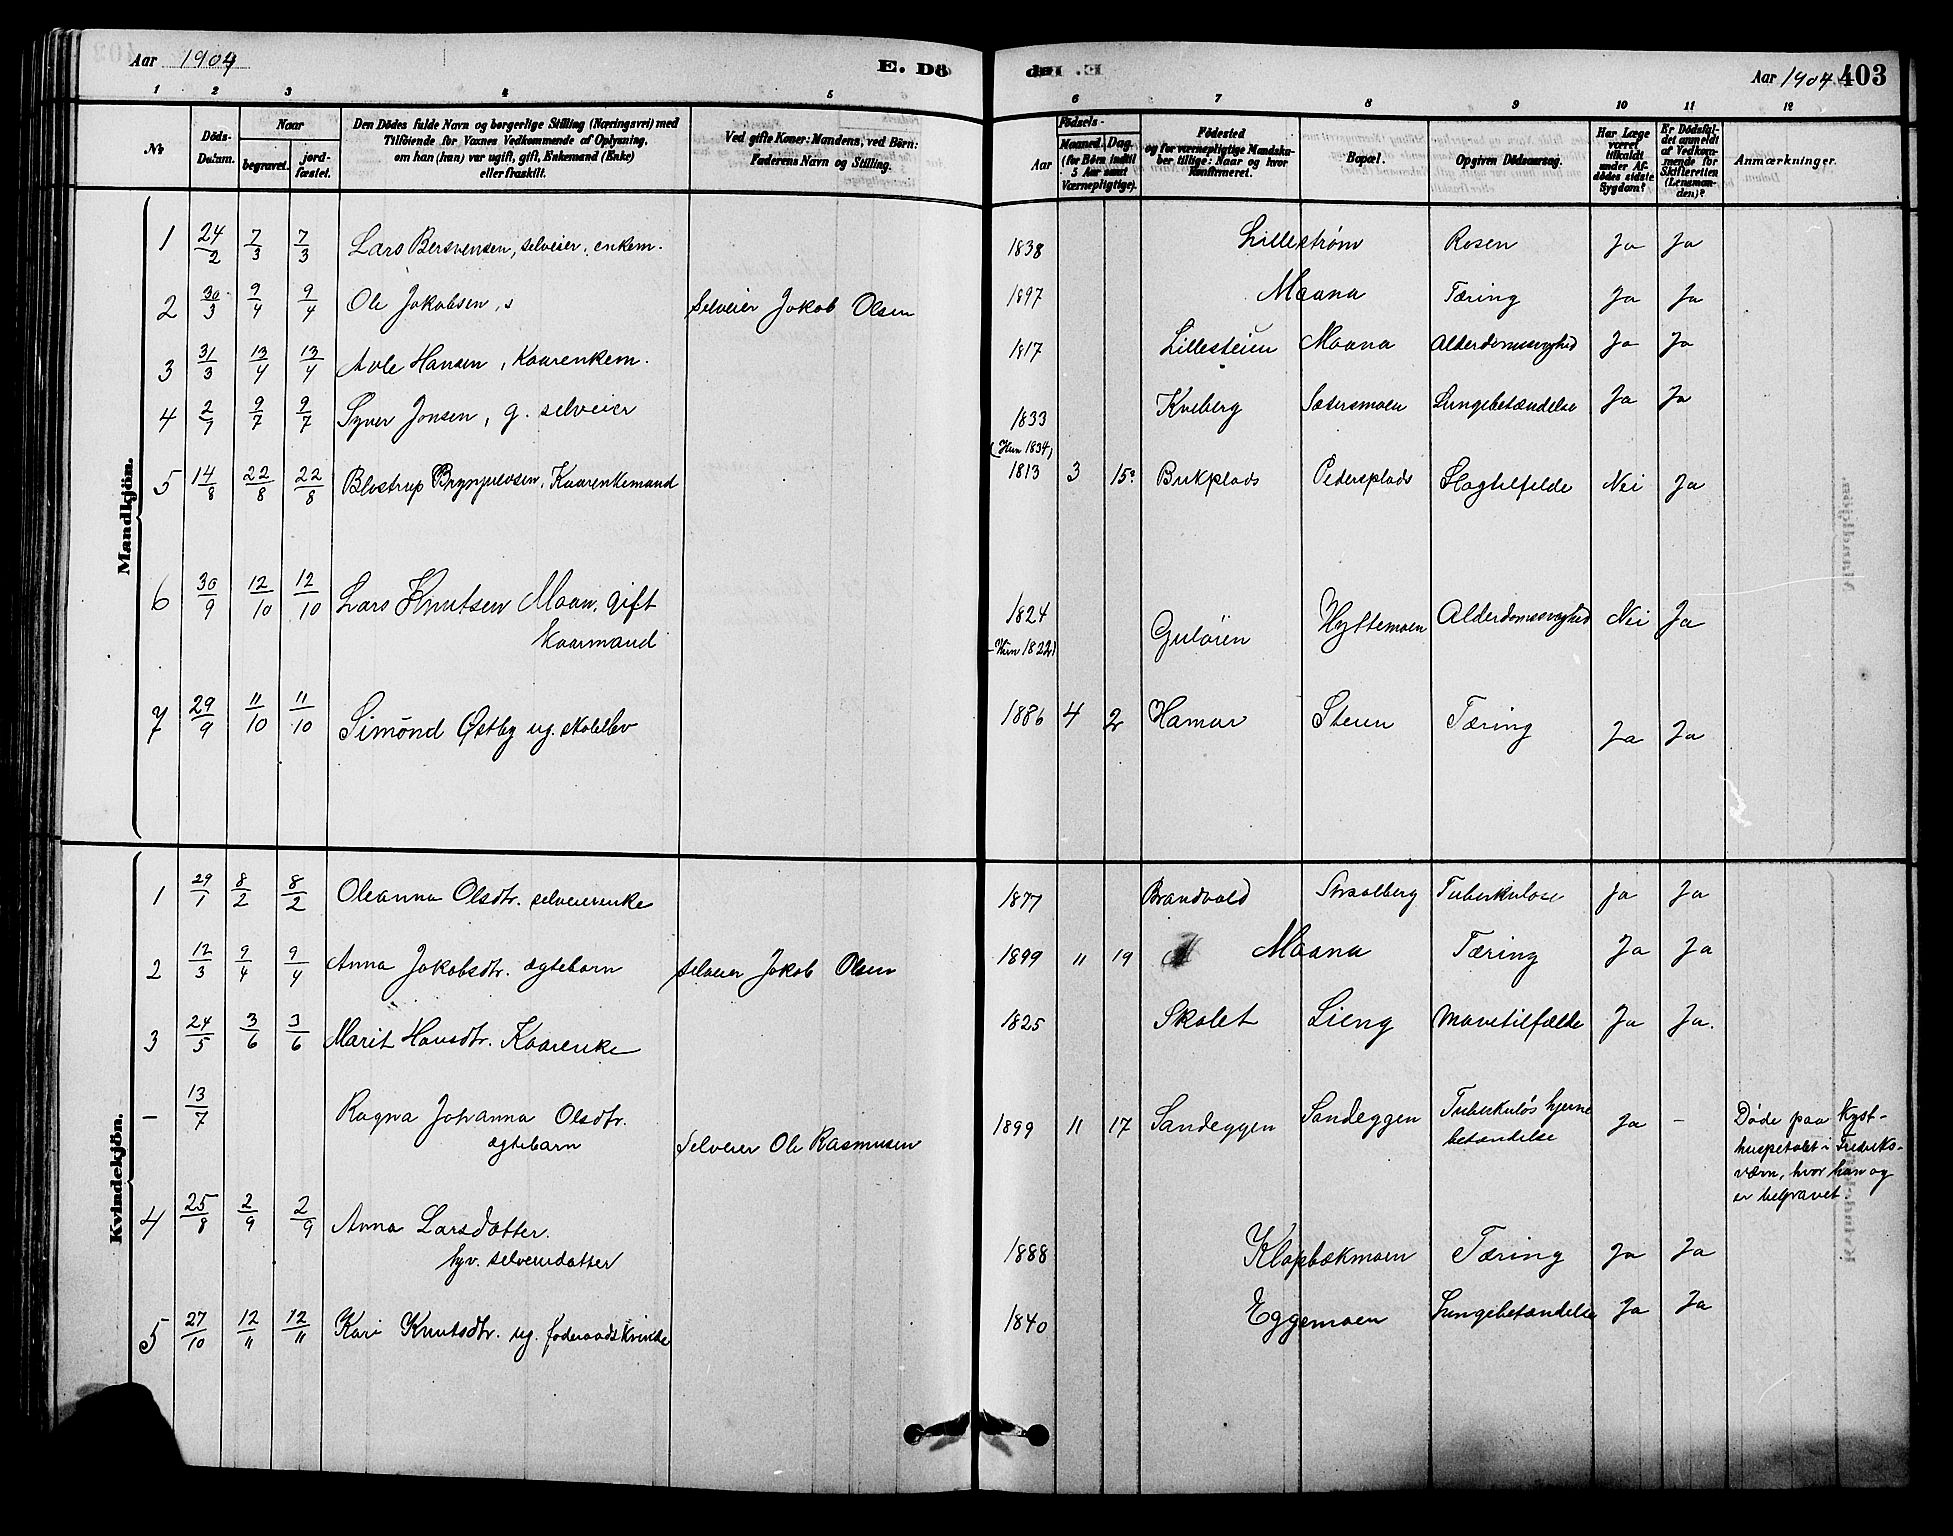 Aar 1904
E. Dö
Aar 1904. 403
1 2 3 4 5 6 7 8 9 10 11 12
No
Döds-Datum.
Naar
begravet.
jord-fæstet.
Den Dödes fulde Navn og borgerlige Stilling (Næringsvei) med
Tilföiende for Voxnes Vedkommende af Oplysning,
om han (hun) var ugift, gift, Enkemand (Enke)
eller fraskilt.
Ved gifte Koner: Mandens, ved Börn:
Faderens Navn og Stilling.
Födsels-
Aar
Maaned. Dag.
(for Börn indtil
5 Aar samt
Værnepligtige).
Födested
og for værnepligtige Mandska-
ber tillige: Naar og hvor
konfirmeret.
Bopæl.
Opgiven Dödsaarsag.
Har Læge
været
tilkaldt
under Af-
dödes sidste
Sygdom?
Er Dödsfal-
det anmeldt
af Vedkom-
mende for
Skifteretten
(Lensman-
den)?
Anmærkninger.
Mandkjön.
1 24/2 7/3 7/3 Lars Bersvensen, selveier, enkem. 1838 Lillestrøm Rosen Ja Ja
2 30/3 9/4 9/4 Ole Jakobsen, s Selveier Jakob Olsen 1897 Maana Tæring Ja Ja
3 31/3 13/4 13/4 Avle Hansen, Kaarenkem. 1817 Lillesteien Maana Alderdomssvaghed Ja Ja
4 2/7 9/7 9/7 Syver Jonsen, g. selveier 1833 Kveberg Sætersmoen Lungebetændelse Ja Ja
(Hun 1834)
5 14/8 22/8 22/8 Blostrup Brynjulvsen, Kaarenkemand 1813 3 15? Bukplads Pedersplads Slagtilfelde Nei Ja
6 30/9 12/10 12/10 Lars Knutsen Maan, gift 1824 Guløien Hyttemoen Alderdomssvaghed Nei Ja
Kaarmand
7 29/9 11/10 11/10 Simønd Østby ug. skoleelev 1886 4 2 Hamar Steien Tæring Ja Ja
Kvindekjön.
1 29/1 8/2 8/2 Oleanna Olsdtr. selveierenke 1877 Brandvold Straalberg Tuberkulose Ja Ja
2 12/3 9/4 9/4 Anna Jakobsdtr. ægtebarn selveier Jakob Olsen 1899 11 19 Maana Tæring Ja Ja
3 24/5 3/6 3/6 Marit Hansdtr. Kaarenke 1825 Skolet Lieng Mavetilfælde Ja Ja.
- 13/7 Ragna Johanna Olsdtr. 1899 11 17 Sandeggen Sandeggen Tuberkuløs hjerne Ja - Døde paa Kyst-
ægtebarn Selveier Ole Rasmusen betændelse
huspetalet i Fredriks-
værn, hvor hun og
er begravet.
4 25/8 2/9 2/9 Anna Larsdatter.
hjv. selveierdatter 1888 Klopbækmoen Tæring Ja Ja
5 27/10 12/11 12/11 Kari Knutsdtr. ug. føderaadskvinde 1840 Eggemoen Lungebetændelse Ja Ja